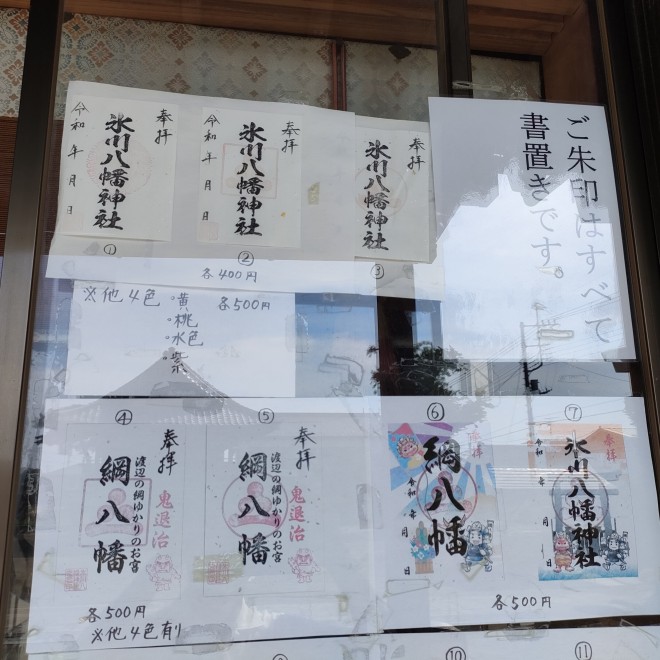 ご朱印はすべて
書置きです。
奉拝
氷川八幡神社
令和 年 月 日
①
奉拝
氷川八幡神社
令和 年 月 日
②
奉拝
氷川八幡神社
③
各400円
※他4色
・黄
・桃
・水色
・紫
各500円
④
奉拝
渡辺の綱ゆかりのお宮
綱八幡
鬼退治
⑤
奉拝
渡辺の綱ゆかりのお宮
綱八幡
鬼退治
各500円
※他4色有り
⑥
奉拝
綱八幡
令和 年 月 日
⑦
奉拝
氷川八幡神社
令和 年 月 日
各500円
⑩
⑪